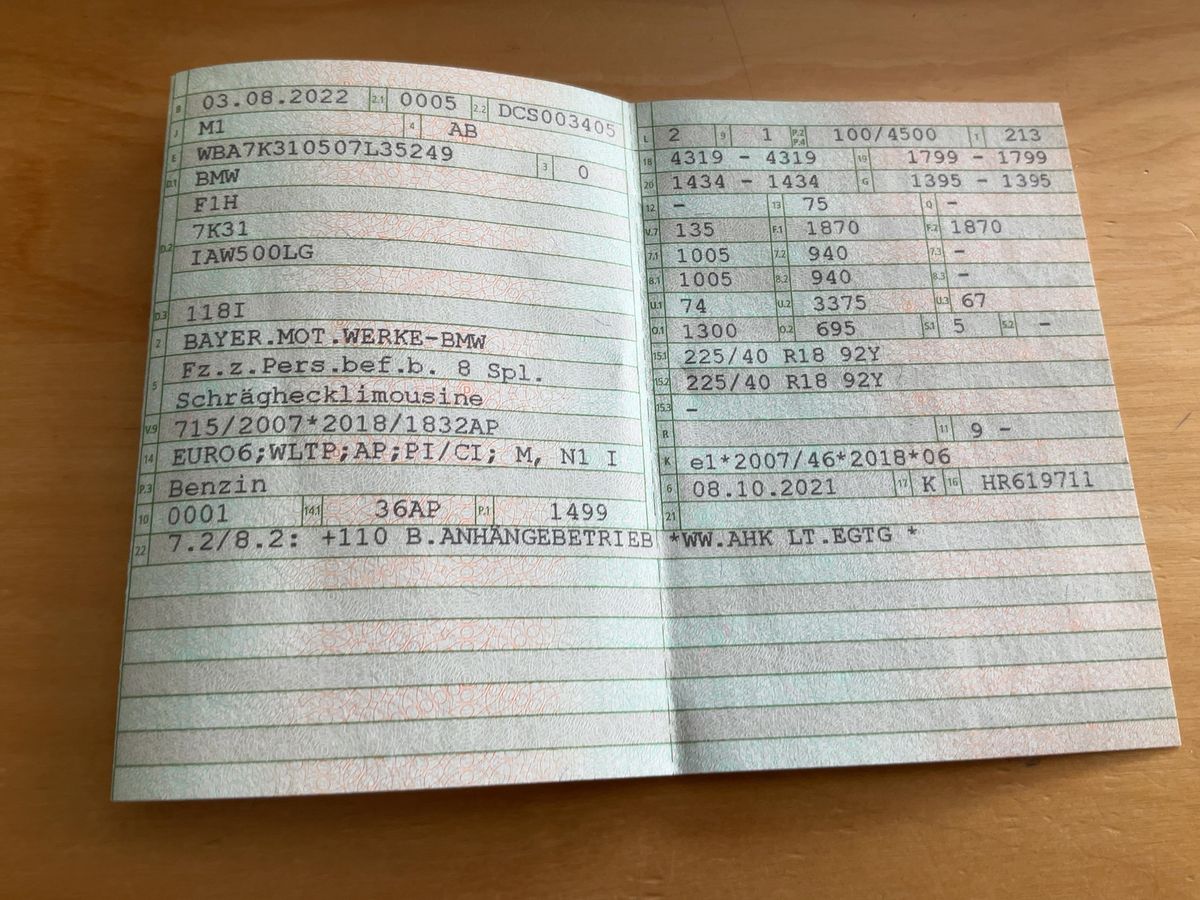 B 03.08.2022 2.1 0005 2.2 DCS003405
J M1 4 AB
E WBA7K310507L35249 3 0
D.1 BMW
F1H
7K31
D.2 IAW500LG
D.3 118I
2 BAYER.MOT.WERKE-BMW
Fz.z.Pers.bef.b. 8 Spl.
5 Schräghecklimousine
V.9 715/2007*2018/1832AP
14 EURO6;WLTP;AP;PI/CI; M, N1 I
P.3 Benzin
10 0001 14.1 36AP P.1 1499
22 7.2/8.2: +110 B.ANHÄNGEBETRIEB *WW.AHK LT.EGTG *
L 2 9 1 P.2 P.4 100/4500 T 213
18 4319 - 4319 19 1799 - 1799
20 1434 - 1434 G 1395 - 1395
12 - 13 75 Q -
V.7 135 F.1 1870 F.2 1870
7.1 1005 7.2 940 7.3 -
8.1 1005 8.2 940 8.3 -
U.1 74 U.2 3375 U.3 67
O.1 1300 O.2 695 S.1 5 S.2 -
15.1 225/40 R18 92Y
15.2 225/40 R18 92Y
15.3 -
R 11 9 -
K e1*2007/46*2018*06
6 08.10.2021 17 K 16 HR619711
21